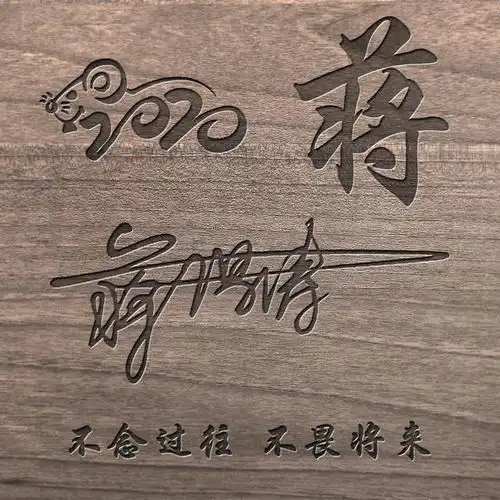 2020 蒋
蒋
不念过往 不畏将来